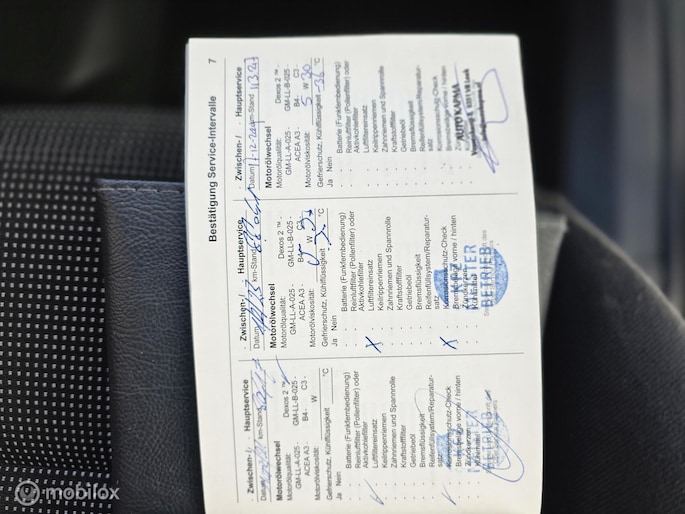 Bestätigung Service-Intervalle 7
Zwischen-/ Hauptservice
Datum km-Stand
Motorölwechsel
Motorölqualität: Dexos 2 ™ -
GM-LL-A-025 - GM-LL-B-025 -
ACEA A3 - B4- C3 -
Motorölviskosität: W
Gefrierschutz, Kühlflüssigkeit °C
Ja Nein
- - Batterie (Funkfernbedienung)
- - Reinluftfilter (Pollenfilter) oder
Aktivkohlefilter
- - Luftfiltereinsatz
- - Keilrippenriemen
- - Zahnriemen und Spannrolle
- - Kraftstofffilter
- - Getriebeöl
- - Bremsflüssigkeit
- - Reifenfüllsystem/Reparatur-
satz
- - Korrosionsschutz-Check
- - Bremsbeläge vorne / hinten
- - Zündkerzen
BETRIEB
Zwischen-/ Hauptservice
Datum km-Stand
Motorölwechsel
Motorölqualität: Dexos 2 ™ -
GM-LL-A-025 - GM-LL-B-025 -
ACEA A3 - B4- C3
Motorölviskosität: W
Gefrierschutz, Kühlflüssigkeit °C
Ja Nein
- - Batterie (Funkfernbedienung)
- - Reinluftfilter (Pollenfilter) oder
Aktivkohlefilter
X - Luftfiltereinsatz
- - Keilrippenriemen
- - Zahnriemen und Spannrolle
- - Kraftstofffilter
- - Getriebeöl
- - Bremsflüssigkeit
- - Reifenfüllsystem/Reparatur-
satz
- - Korrosionsschutz-Check
X - Bremsbeläge vorne / hinten
- - Zündkerzen
BETRIEB
Zwischen-/ Hauptservice
Datum km-Stand
Motorölwechsel
Motorölqualität: Dexos 2 ™ -
GM-LL-A-025 - GM-LL-B-025 -
ACEA A3 - B4- C3 -
Motorölviskosität: 5 W 30
Gefrierschutz, Kühlflüssigkeit -36 °C
Ja Nein
- - Batterie (Funkfernbedienung)
- - Reinluftfilter (Pollenfilter) oder
Aktivkohlefilter
- - Luftfiltereinsatz
- - Keilrippenriemen
- - Zahnriemen und Spannrolle
- - Kraftstofffilter
- - Getriebeöl
- - Bremsflüssigkeit
- - Reifenfüllsystem/Reparatur-
satz
- - Korrosionsschutz-Check
- - Bremsbeläge vorne / hinten
AUTO KAPMA
mobilox